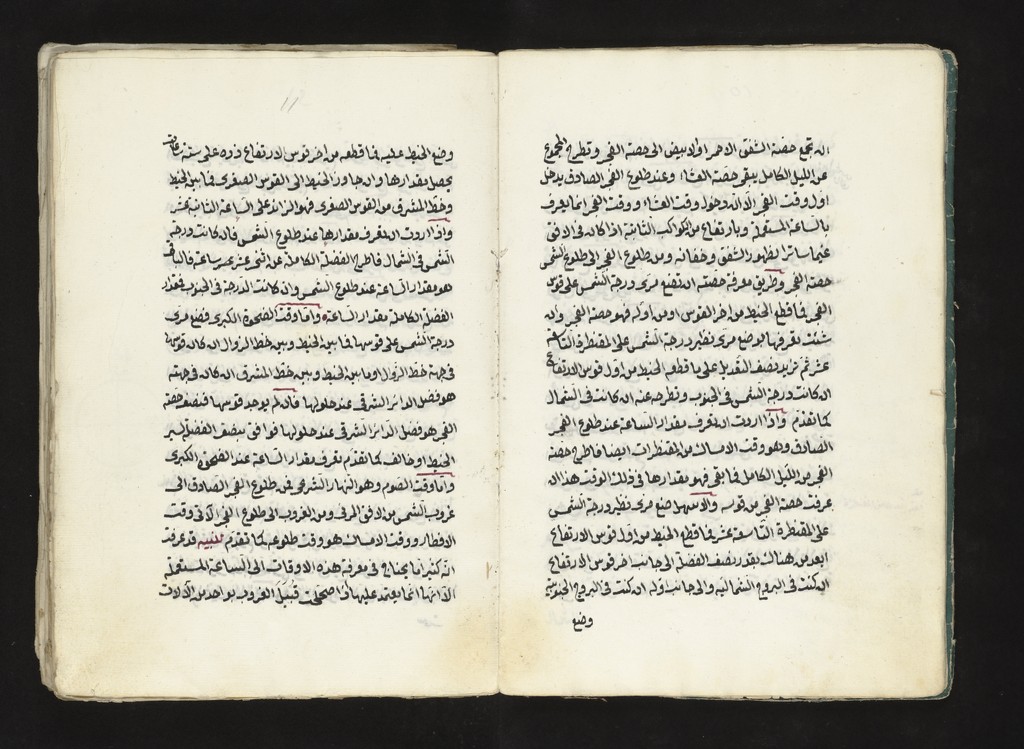 ان تجمع حصة الشفق الاحمر او الابيض الى حصة الفجر وتطرح المجموع
من الليل الكامل يبقى حصة العشا وعند طلوع الفجر الصادق يدخل
اول وقت الفجر الا ان دخول وقت العشا ووقت الفجر انما يعرف
بالساعة المستعملة وبارتفاع من الكواكب الثابتة اذا كان في الافق
غيما ساترا لظهور الشفق وخفائه ومن طلوع الفجر الى طلوع الشمس
حصة الفجر وطريق معرفة حصته ان تضع مرى درجة الشمس على قوس
الفجر فما قطع الخيط من اخر القوس او من اوله فهو حصة الفجر وان
شئت تعرفها بوضع مرى نظير درجة الشمس على المقنطرة التاسعة
عشر ثم تزيد نصف التعديل على ما قطع الخيط من اول قوس الارتفاع
ان كانت درجة الشمس في الجنوب وتطرحه عنه ان كانت في الشمال
كما تقدم واذا اردت ان تعرف مقدار الساعة عند طلوع الفجر
الصادق وهو وقت الامساك من المقنطرات ايضا فاطرح حصة
الفجر من الليل الكامل فما بقى فهو مقدارها في ذلك الوقت هذا ان
عرفت حصة الفجر من قوسه والاسهل ضع مرى نظير درجة الشمس
على المقنطرة التاسعة عشر فما قطع الخيط من اول قوس الارتفاع
ابعد من هنالك بقدر نصف الفضلة الى جانب اخر قوس الارتفاع
ان كنت في البروج الشمالية والى جانب اوله ان كنت في البروج الجنوبية
وضع
وضع الخيط عليه فما قطعه من اخر قوس الارتفاع زده على ستة ساعات
يحصل مقدارها وان جاوز الخيط الى القوس الصغرى فما بين الخيط
وخط المشرق من القوس الصغرى فهو الزائد على الساعة الثانية عشر
واذا اردت ان تعرف مقدارها عند طلوع الشمس فان كانت درجة
الشمس في الشمال فاطرح الفضلة الكاملة عن اثنى عشر ساعة فالباقى
هو مقدار الساعة عند طلوع الشمس وان كانت الدرجة في الجنوب فقدر
الفضلة الكاملة مقدار الساعة واما وقت الضحوة الكبرى فضع مرى
درجة الشمس على قوسها فما بين الخيط وبين خط الزوال ان كان قوسها
في جهة خط الزوال او ما بين الخيط وبين خط المشرق ان كان في جهته
هو فضل الدائر الشرقى عند حلولها فان لم يوجد قوسها فنصف حصة
الفجر هو فضل الدائر الشرقى عند حلولها فوافق بنصف الفضلة سير
الخيط او خالف كما تقدم تعرف مقدار الساعة عند الضحوة الكبرى
واما وقت الصوم وهو النهار الشرعى من طلوع الفجر الصادق الى
غروب الشمس من الافق المرئى ومن الغروب الى طلوع الفجر الآتى وقت
الافطار ووقت الامساك هو وقت طلوعه كما تقدم تنبيه قد عرفت
انه كثيرا ما يحتاج في معرفة هذه الاوقات الى الساعة المستعملة
الا انها انما يعتمد عليها اذا اصلحت قبيل الغروب بواحد من الآلات